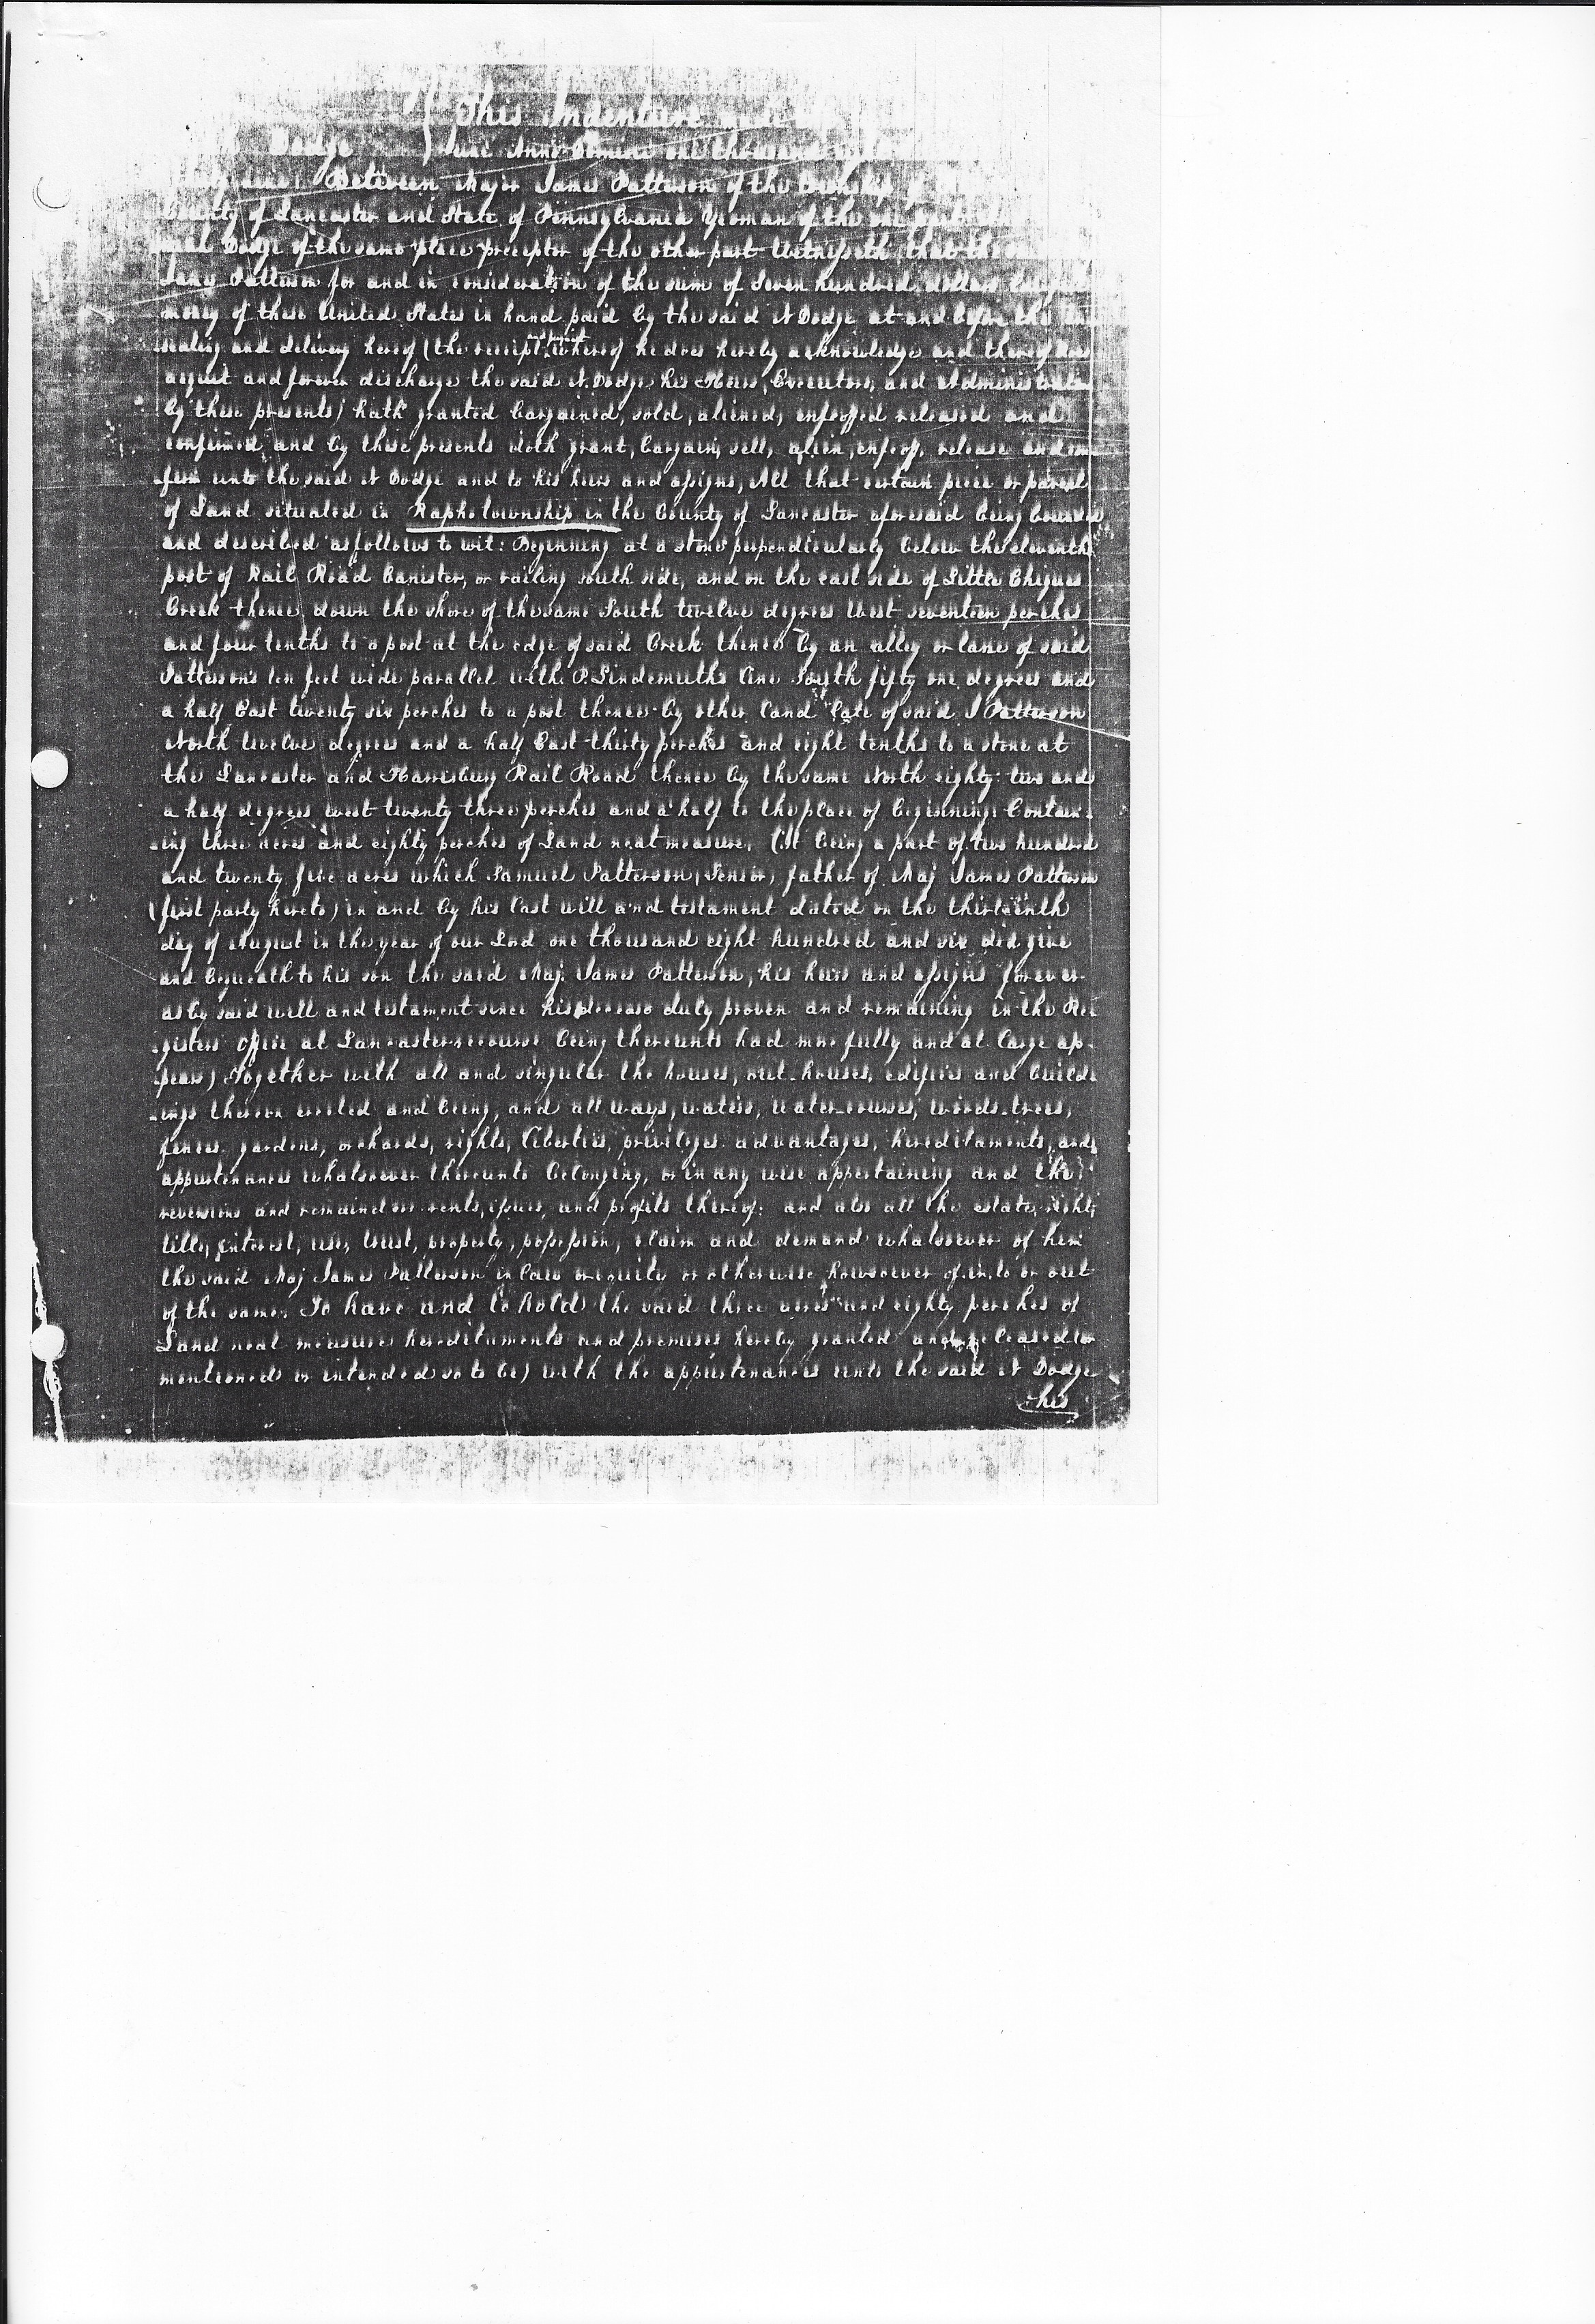 This Indenture
Dodge June Anno Domini one thousand
Between Major James Patterson of the Township of
County of Lancaster and State of Pennsylvania Yeoman of the one part
Dodge of the same place preceptor of the other part Witnesseth, that the
James Patterson for and in consideration of the sum of Seven hundred dollars
money of these United States in hand paid by the said N Dodge at and before the
sealing and delivery hereof (the receipt and payment whereof he does hereby acknowledge and thereof does
acquit and forever discharge the said N. Dodge his Heirs, Executors, and Administrators
by these presents) hath granted bargained, sold, aliened, enfeoffed released and
confirmed and by these presents doth grant, bargain, sell, alien, enfeoff, release and con
firm unto the said N Dodge and to his heirs and assigns, All that certain piece or parcel
of Land situated in Rapho township in the County of Lancaster aforesaid being bounded
and described as follows to wit: Beginning at a stone perpendicularly below the eleventh
post of Rail Road Canister, or railing south side, and on the east side of Little Chiques
Creek thence down the shore of the same South twelve degrees West seventeen perches
and four tenths to a post at the edge of said Creek thence by an alley or lane of said
Patterson's ten feet wide parallel with P. Lindemuth's line South fifty one degrees and
a half East twenty six perches to a post thence by other land late of said J Patterson
North twelve degrees and a half East thirty perches and eight tenths to a stone at
the Lancaster and Harrisburg Rail Road thence by the same North eighty two and
a half degrees west twenty three perches and a half to the place of beginning: Contain-
ing three acres and eighty perches of Land neat measure, (It being a part of two hundred
and twenty five acres which Samuel Patterson, (Senior) father of Maj James Patterson
(first party hereto) in and by his last will and testament dated on the thirteenth
day of August in the year of our Lord one thousand eight hundred and six did give
and bequeath to his son the said Maj. James Patterson, his heirs and assigns forever
as by said will and testament since his decease duly proven and remaining in the Re
gisters office at Lancaster recourse being thereunto had more fully and at large ap-
pears) Together with all and singular the houses, out-houses, edifices and build
ings thereon erected and being, and all ways, waters, water-courses, woods, trees,
fences, gardens, orchards, rights, liberties, privileges advantages, hereditaments, and
appurtenances whatsoever thereunto belonging, or in any wise appertaining and the
reversions and remainders rents, issues, and profits thereof: and also all the estate, right,
title, interest, use, trust, property, possession, claim and demand whatsoever of him
the said Maj James Patterson in law or equity or otherwise howsoever of, in, to or out
of the same. To have and to hold the said three acres and eighty perches of
Land neat measure hereditaments and premises hereby granted and released (or
mentioned or intended so to be) with the appurtenances unto the said N Dodge
his